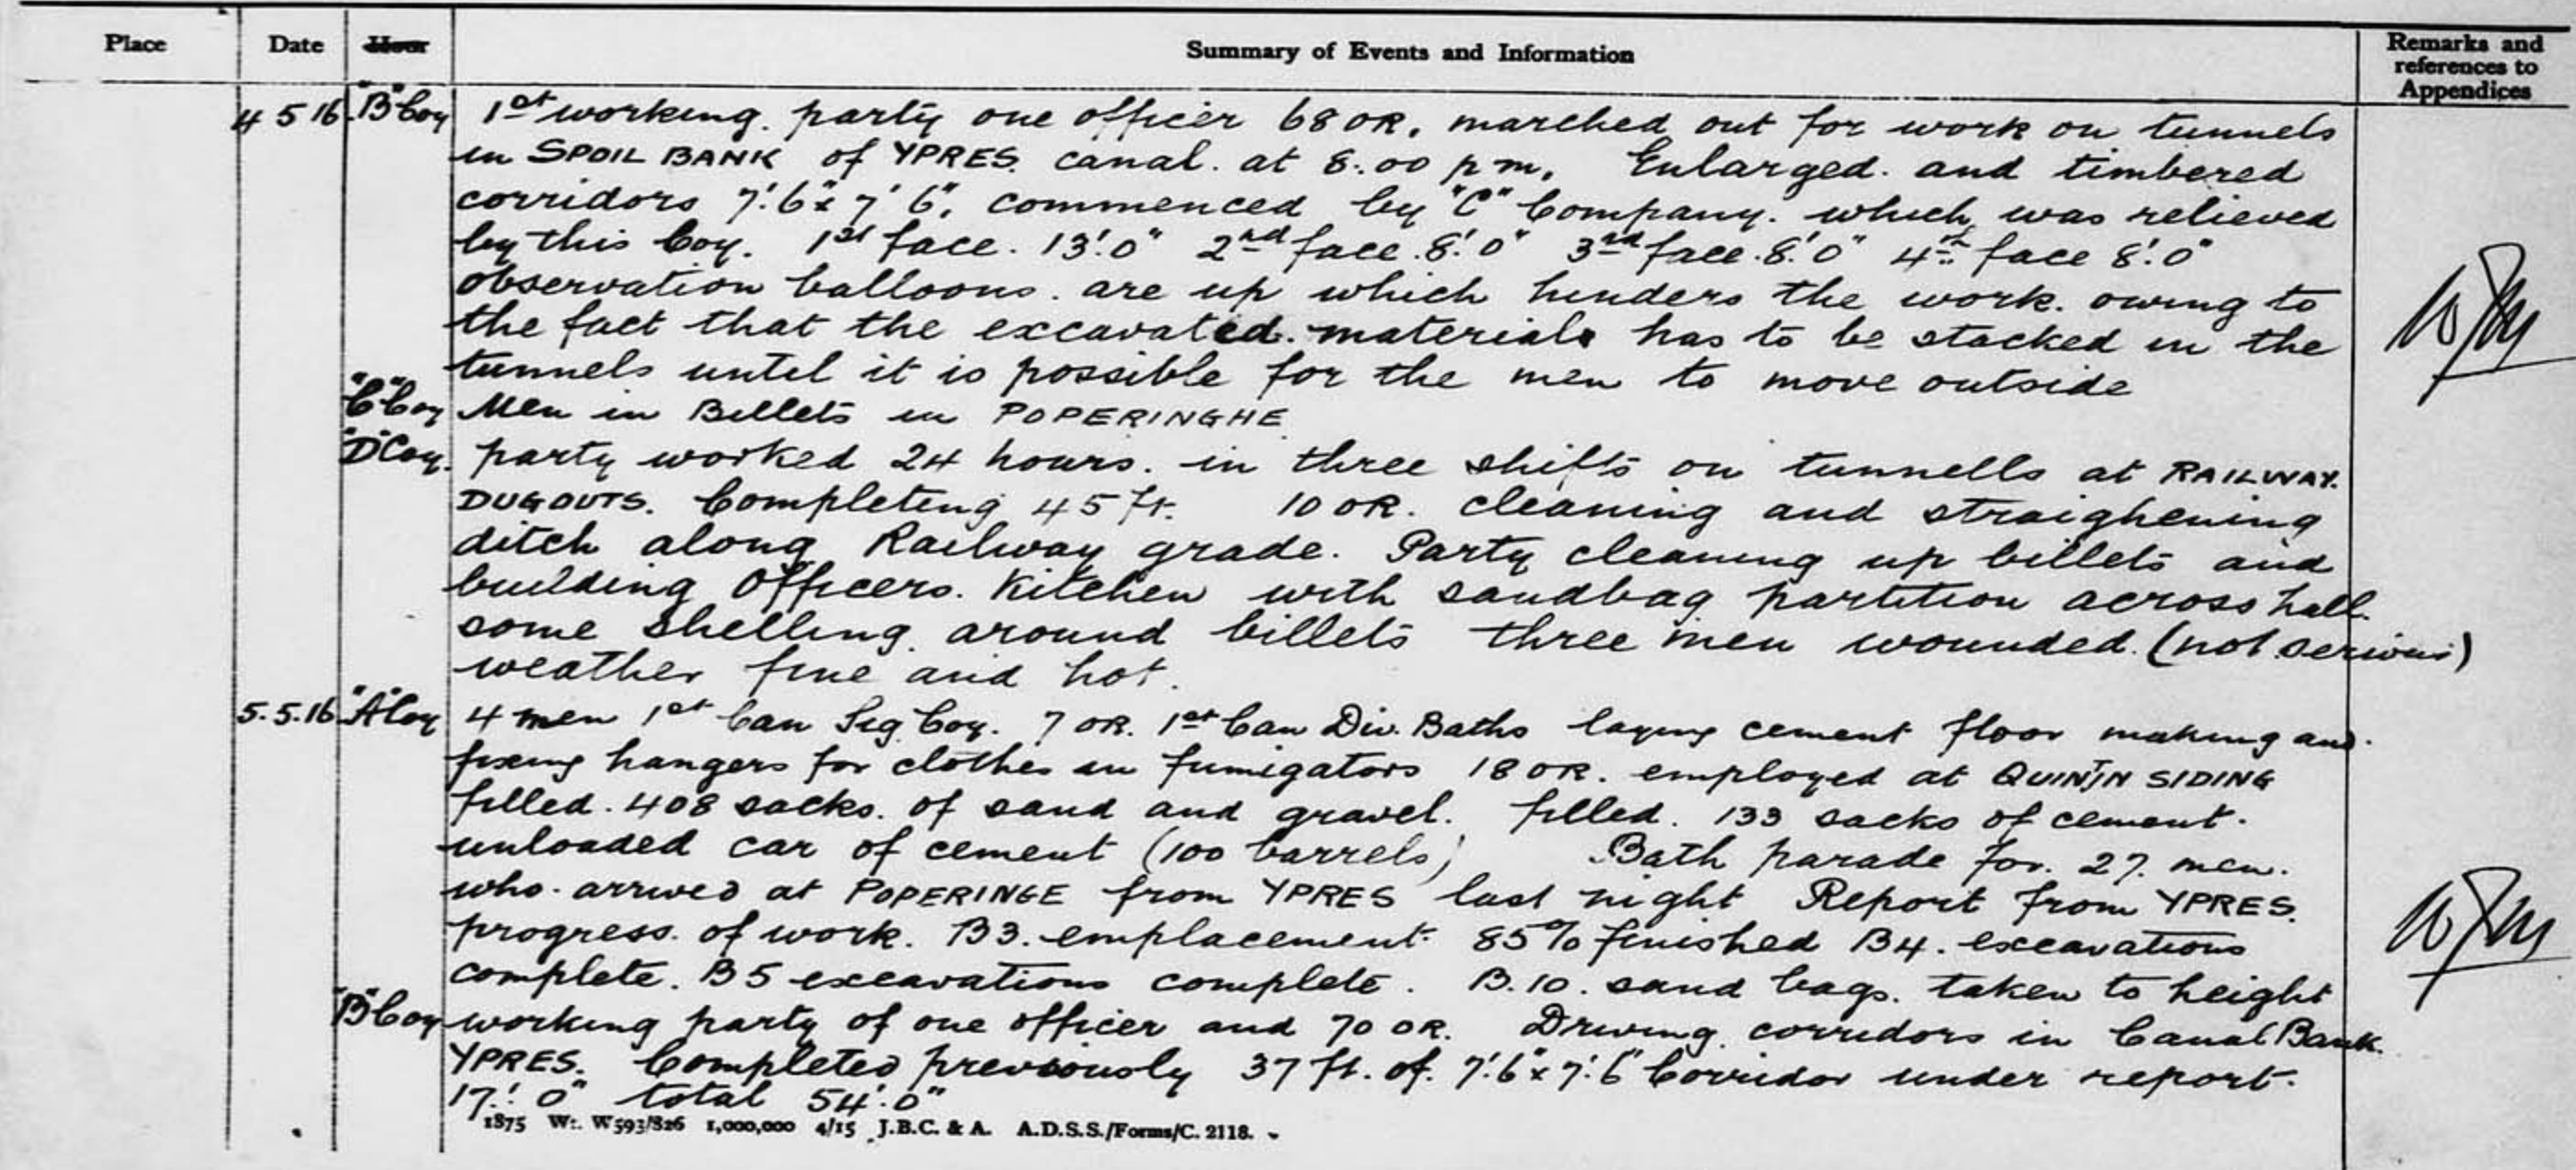 Place Date Hour Summary of Events and Information Remarks and references to Appendices
4 5 16 "B" Coy 1st working. party one officer 68 OR. marched out for work on tunnels
in SPOIL BANK of YPRES. canal. at 8:00 pm. Enlarged. and timbered
corridors 7'.6" x 7' 6". commenced by "C" Company. which was relieved
by this Coy. 1st face. 13'.0" 2nd face. 8'.0" 3rd face. 8'.0" 4th face 8'.0"
observation balloons. are up which hinders the work. owing to
the fact that the excavated. materials has to be stacked in the
tunnels until it is possible for the men to move outside
"C" Coy Men in Billets in POPERINGHE
"D" Coy. party worked 24 hours. in three shifts on tunnells at RAILWAY.
DUGOUTS. Completing 45 ft. 10 OR. cleaning and straighening
ditch along Railway grade. Party cleaning up billets and
building Officers. Kitchen with sandbag partition across hall.
some shelling. around billets three men wounded. (not serious)
weather fine and hot.
5.5.16 "A" Coy 4 men 1st Can Sig Coy. 7 OR. 1st Can Div. Baths laying cement floor making and.
fixing hangers for clothes in fumigators 18 OR. employed at QUINTIN SIDING
filled. 408 sacks. of sand and gravel. filled. 133 sacks of cement.
unloaded car of cement (100 barrels) Bath parade for. 27. men.
who. arrived at POPERINGE from YPRES last night Report from YPRES.
progress. of work. B3. emplacement. 85% finished B4. excavations
complete. B5 excavations complete. B.10. sand bags. taken to height
"B" Coy working party of one officer and 70 OR. Driving. corridors in Canal Bank.
YPRES. Completed previously 37 ft. of. 7'.6" x 7'.6" Corridor under report.
17'.0" total 54'.0"
1875 Wt. W593/826 1,000,000 4/15 J.B.C. & A. A.D.S.S./Forms/C. 2118.